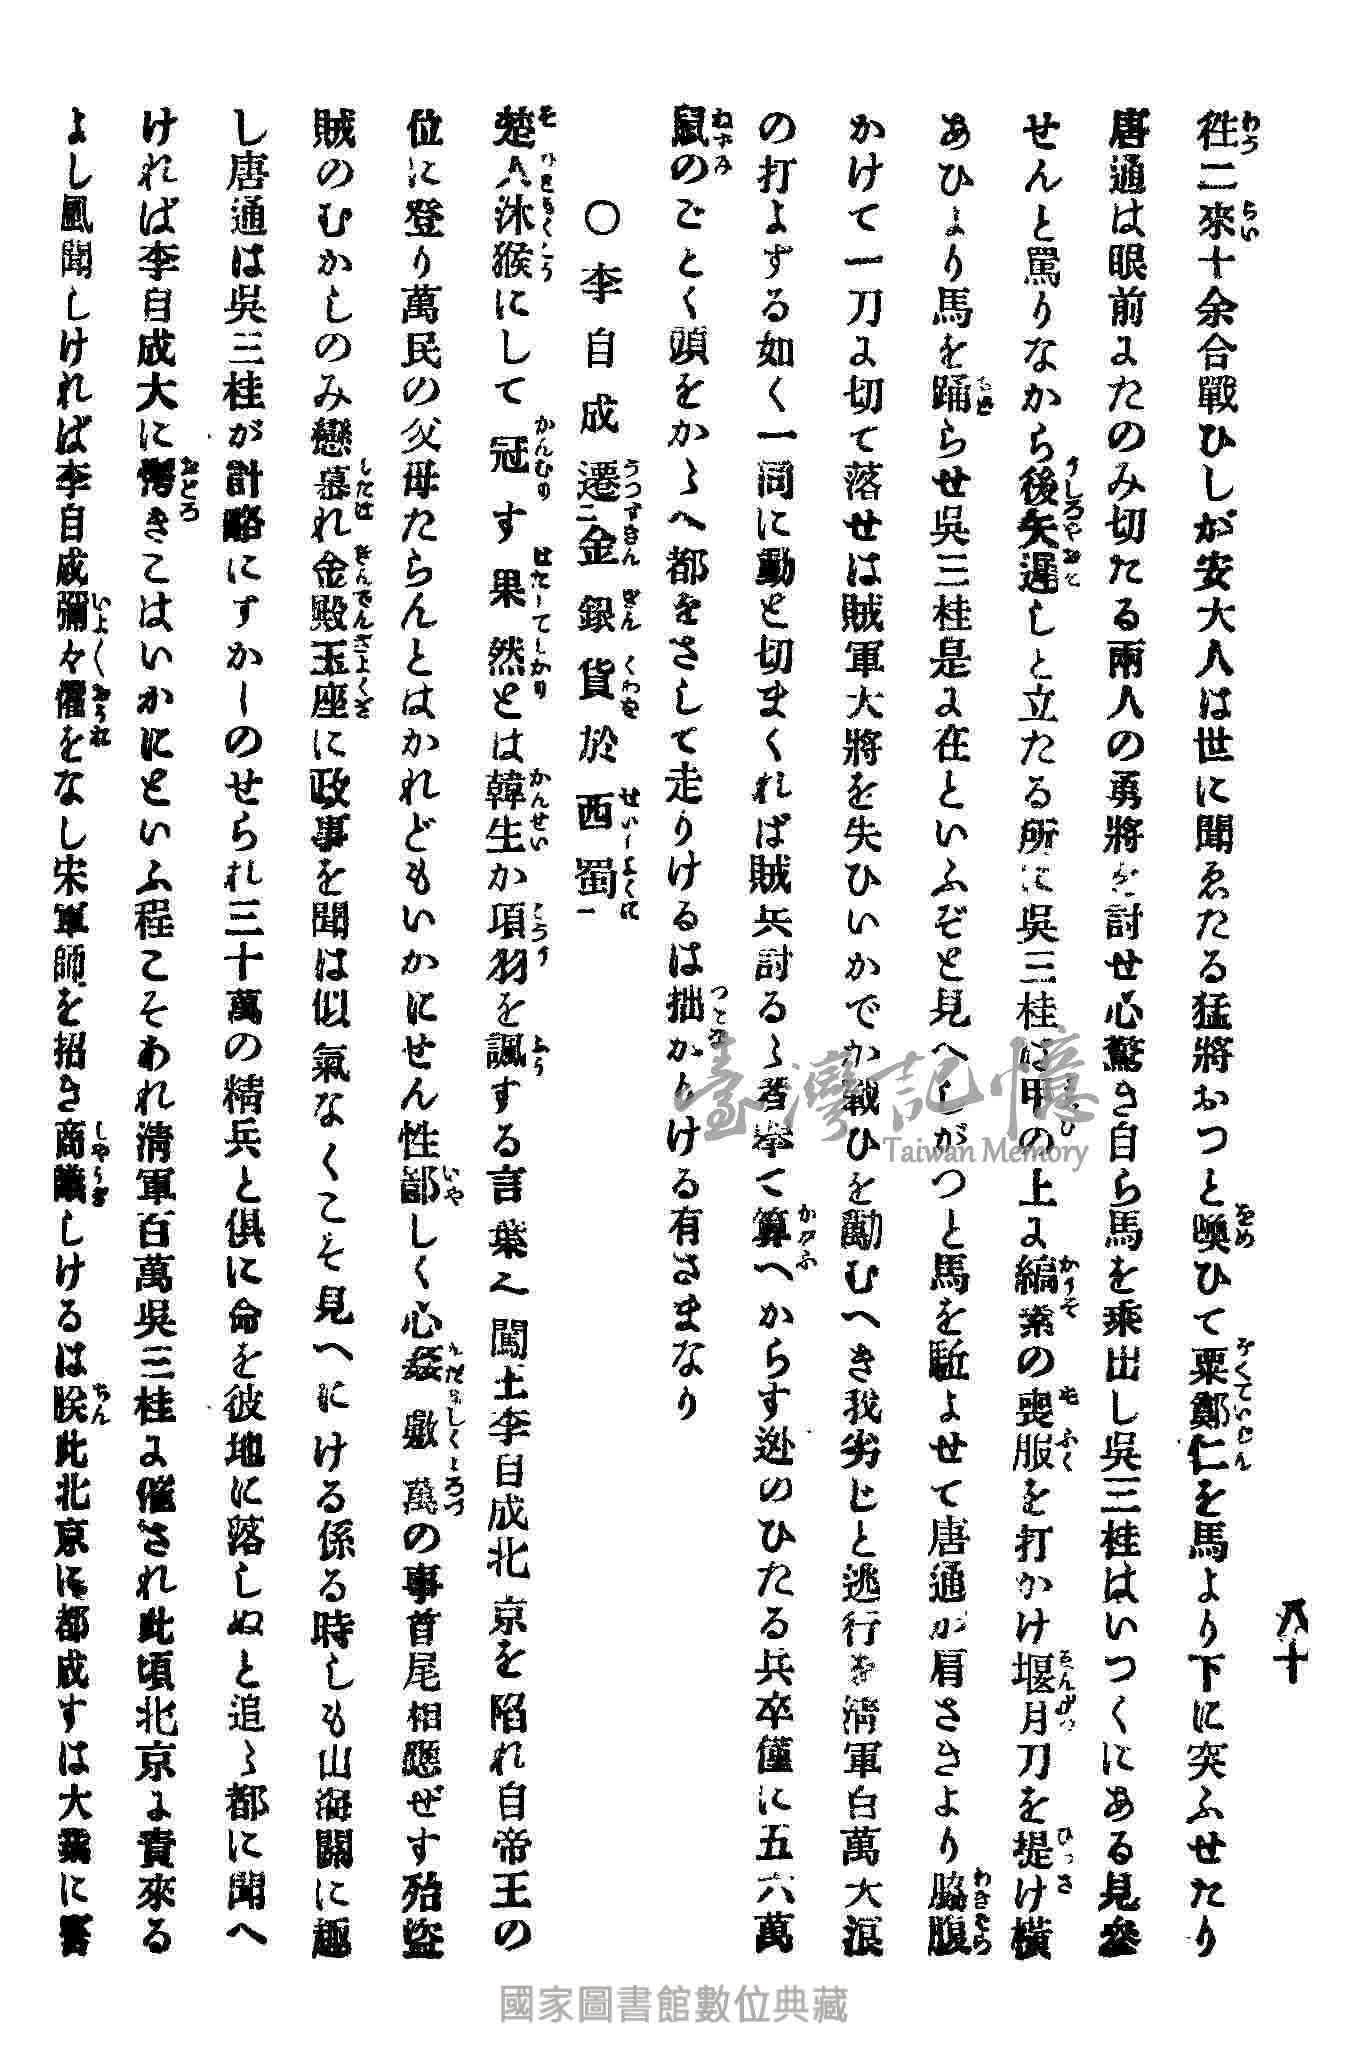 八十
徃二來十余合戰ひしが安大人は世に聞ゑたる猛將おつと喚ひて粟鄭仁を馬より下に突ふせたり
唐通は眼前よたのみ切たる兩人の勇將を討せ心驚き自ら馬を乘出し吳三桂はいつくにある見參
せんと罵りなから後矢遅しと立たる所に吳三桂は甲の上よ縞素の喪服を打かけ堰月刀を堤け橫
あひより馬を踊らせ吳三桂是よ在といふぞと見へしがつと馬を駈よせて唐通が肩さきより脇腹
かけて一刀よ切て落せは賊軍大將を失ひいかでか戰ひを勵むへき我劣じと逃行を淸軍百萬大浪
の打よする如く一同に動と切まくれば賊兵討るゝ者挙て算へからす逊のひたる兵卒僅に五六萬
鼠のごとく頭をかゝへ都をさして走りけるは拙かりける有さまなり
〇李自成遷二金銀貨於西蜀一
楚人沐猴にして冠す果然とは韓生か項羽を諷する言葉へ闖王李自成北京を陷れ自帝王の
位に登り萬民の父母たらんとはかれどもいかにせん性鄙しく心姦敷萬の事首尾相應ぜす殆盜
賊のむかしのみ戀慕れ金殿玉座に政事を聞は似氣なくこそ見へにける係る時しも山海關に趣
し唐通は吳三桂が計略にすかしのせられ三十萬の精兵と俱に命を彼地に落しぬと追ゝ都に聞へ
ければ李自成大に愕きこはいかにといふ程こそあれ淸軍百萬吳三桂よ催され此頃北京よ責來る
よし風聞しければ李自成彌々懼をなし宋軍師を招き商議しけるは朕此北京に都成すは大業に害
臺灣記憶
Taiwan Memory
國家圖書館數位典藏